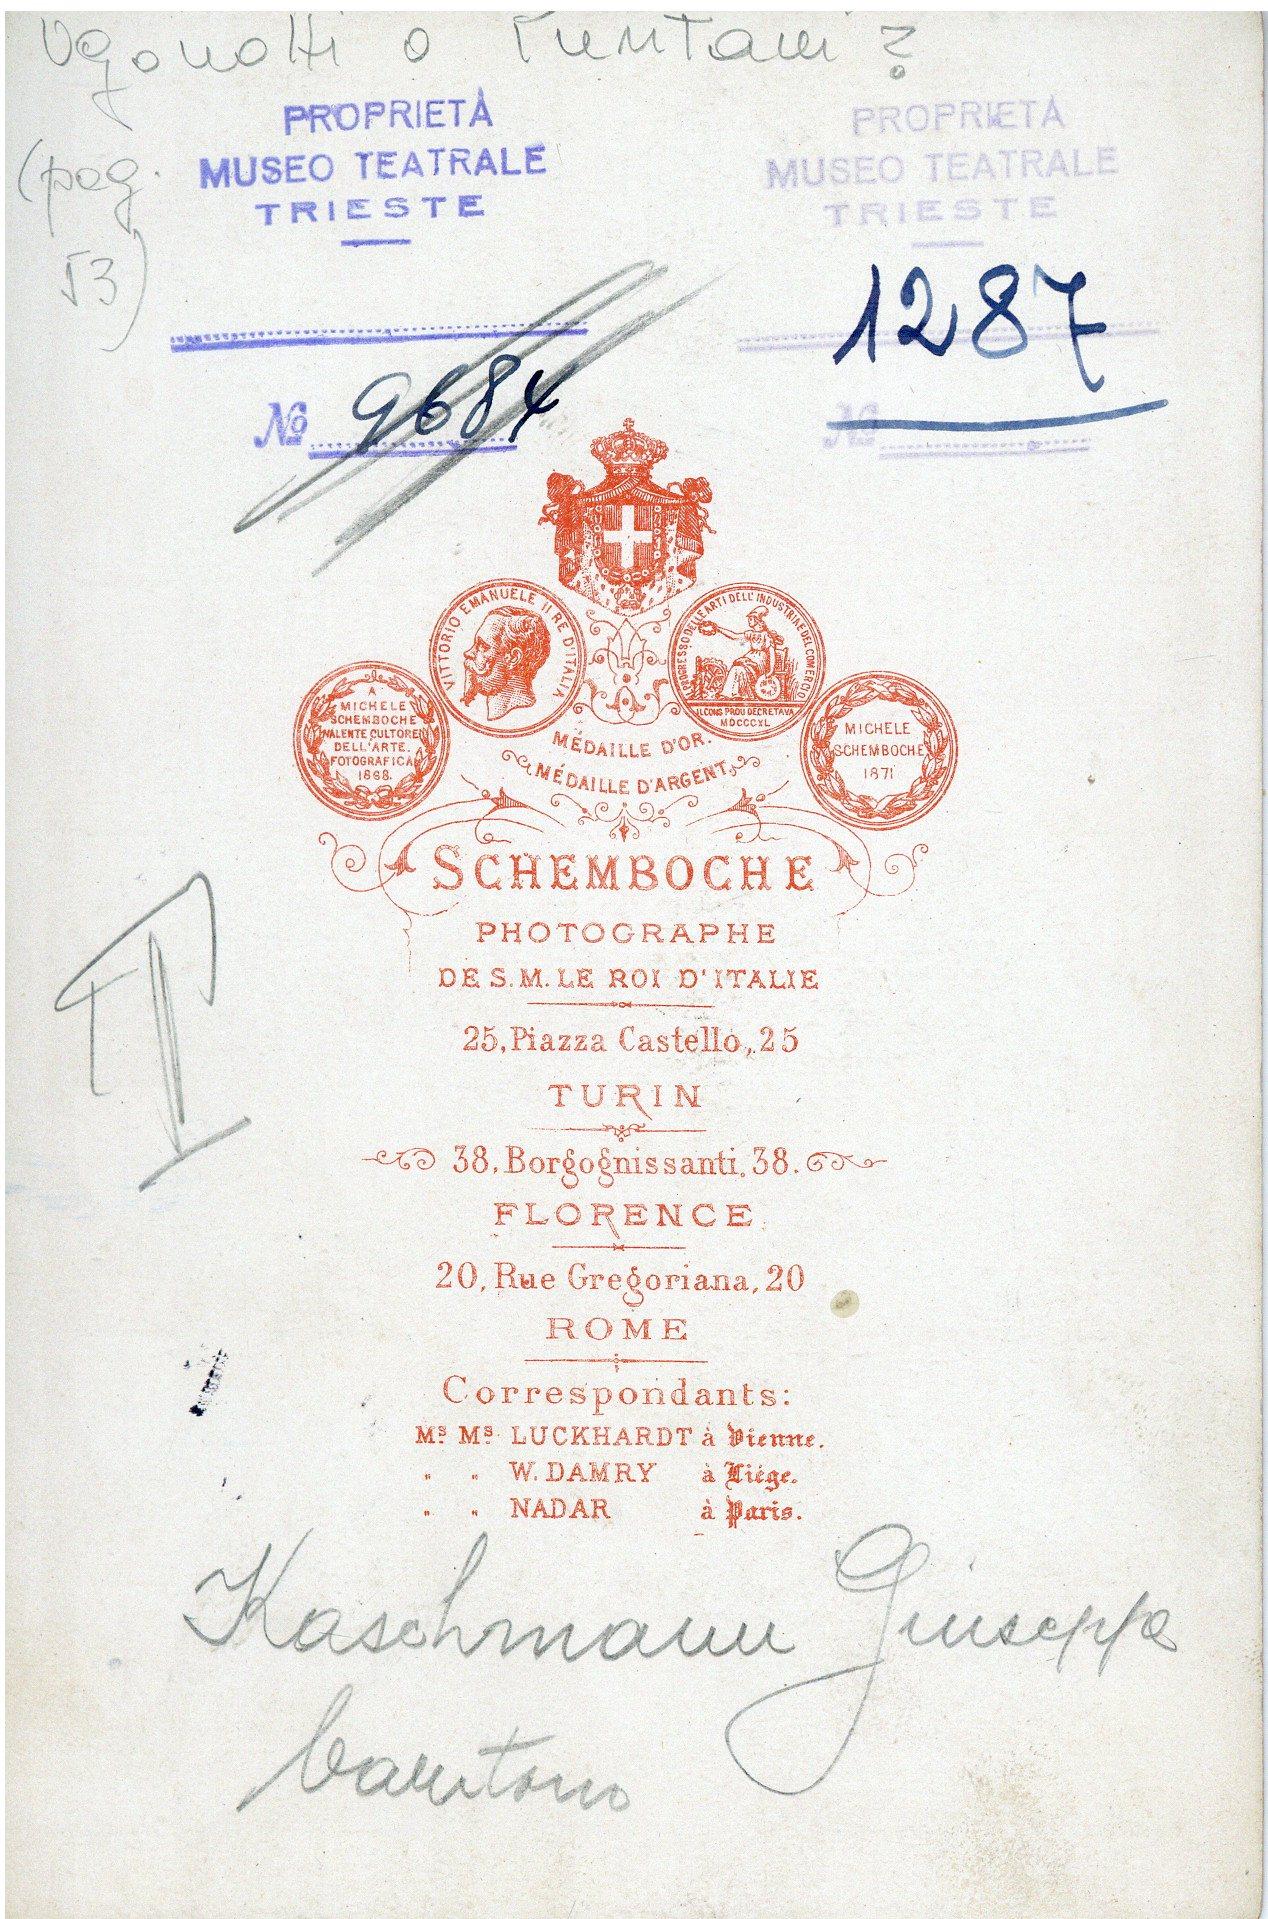 Ugonotti o Puritani?
(pag.
53)
PROPRIETÀ
MUSEO TEATRALE
TRIESTE
PROPRIETÀ
MUSEO TEATRALE
TRIESTE
1287
No 9684
No
VITTORIO EMANUELE II RE D'ITALIA
PROGRESSO DELLE ARTI DELL'INDUSTRIA E DEL COMERCIO
IL CONS PROV DECRETAVA
MDCCCXL
A
MICHELE
SCHEMBOCHE
VALENTE CULTORE
DELL'ARTE.
FOTOGRAFICA
1868.
MICHELE
SCHEMBOCHE
1871
MÉDAILLE D'OR.
MÉDAILLE D'ARGENT
SCHEMBOCHE
PHOTOGRAPHE
DE S. M. LE ROI D'ITALIE
25, Piazza Castello, 25
TURIN
38, Borgognissanti, 38.
FLORENCE
20, Rue Gregoriana, 20
ROME
Correspondants:
Ms Ms LUCKHARDT à Vienne.
" " W. DAMRY à Liége.
" " NADAR à Paris.
Kaschmann Giuseppe
baritono